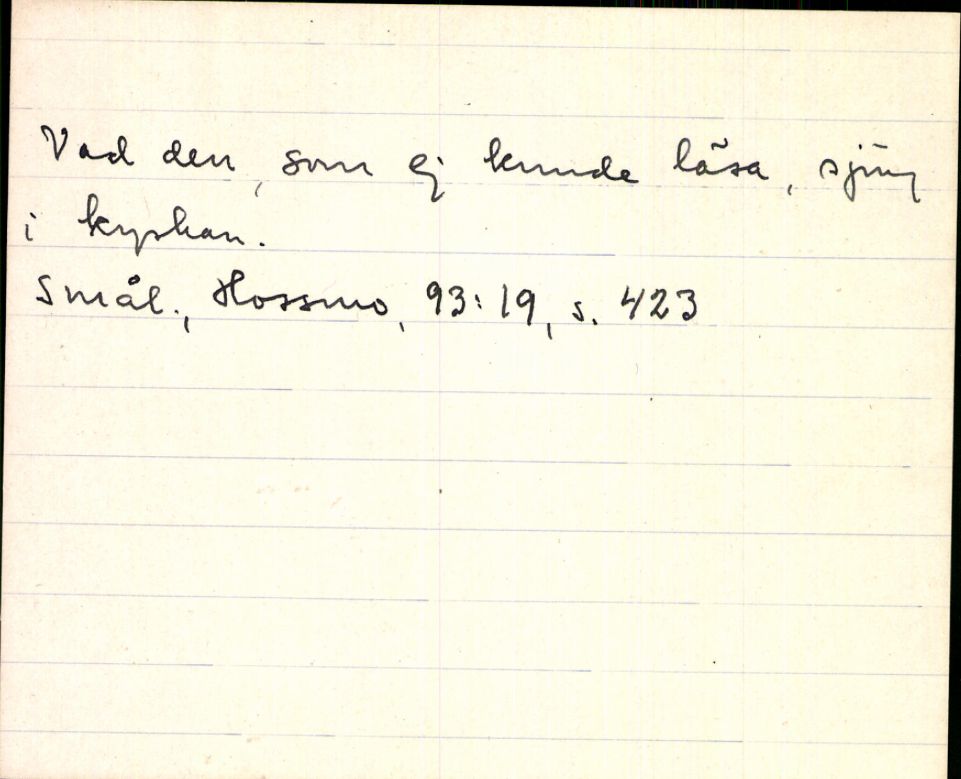 Vad den, som ej kunde läsa, sjöng
i kyrkan.
Smål., Hossmo, 93:19, s. 423